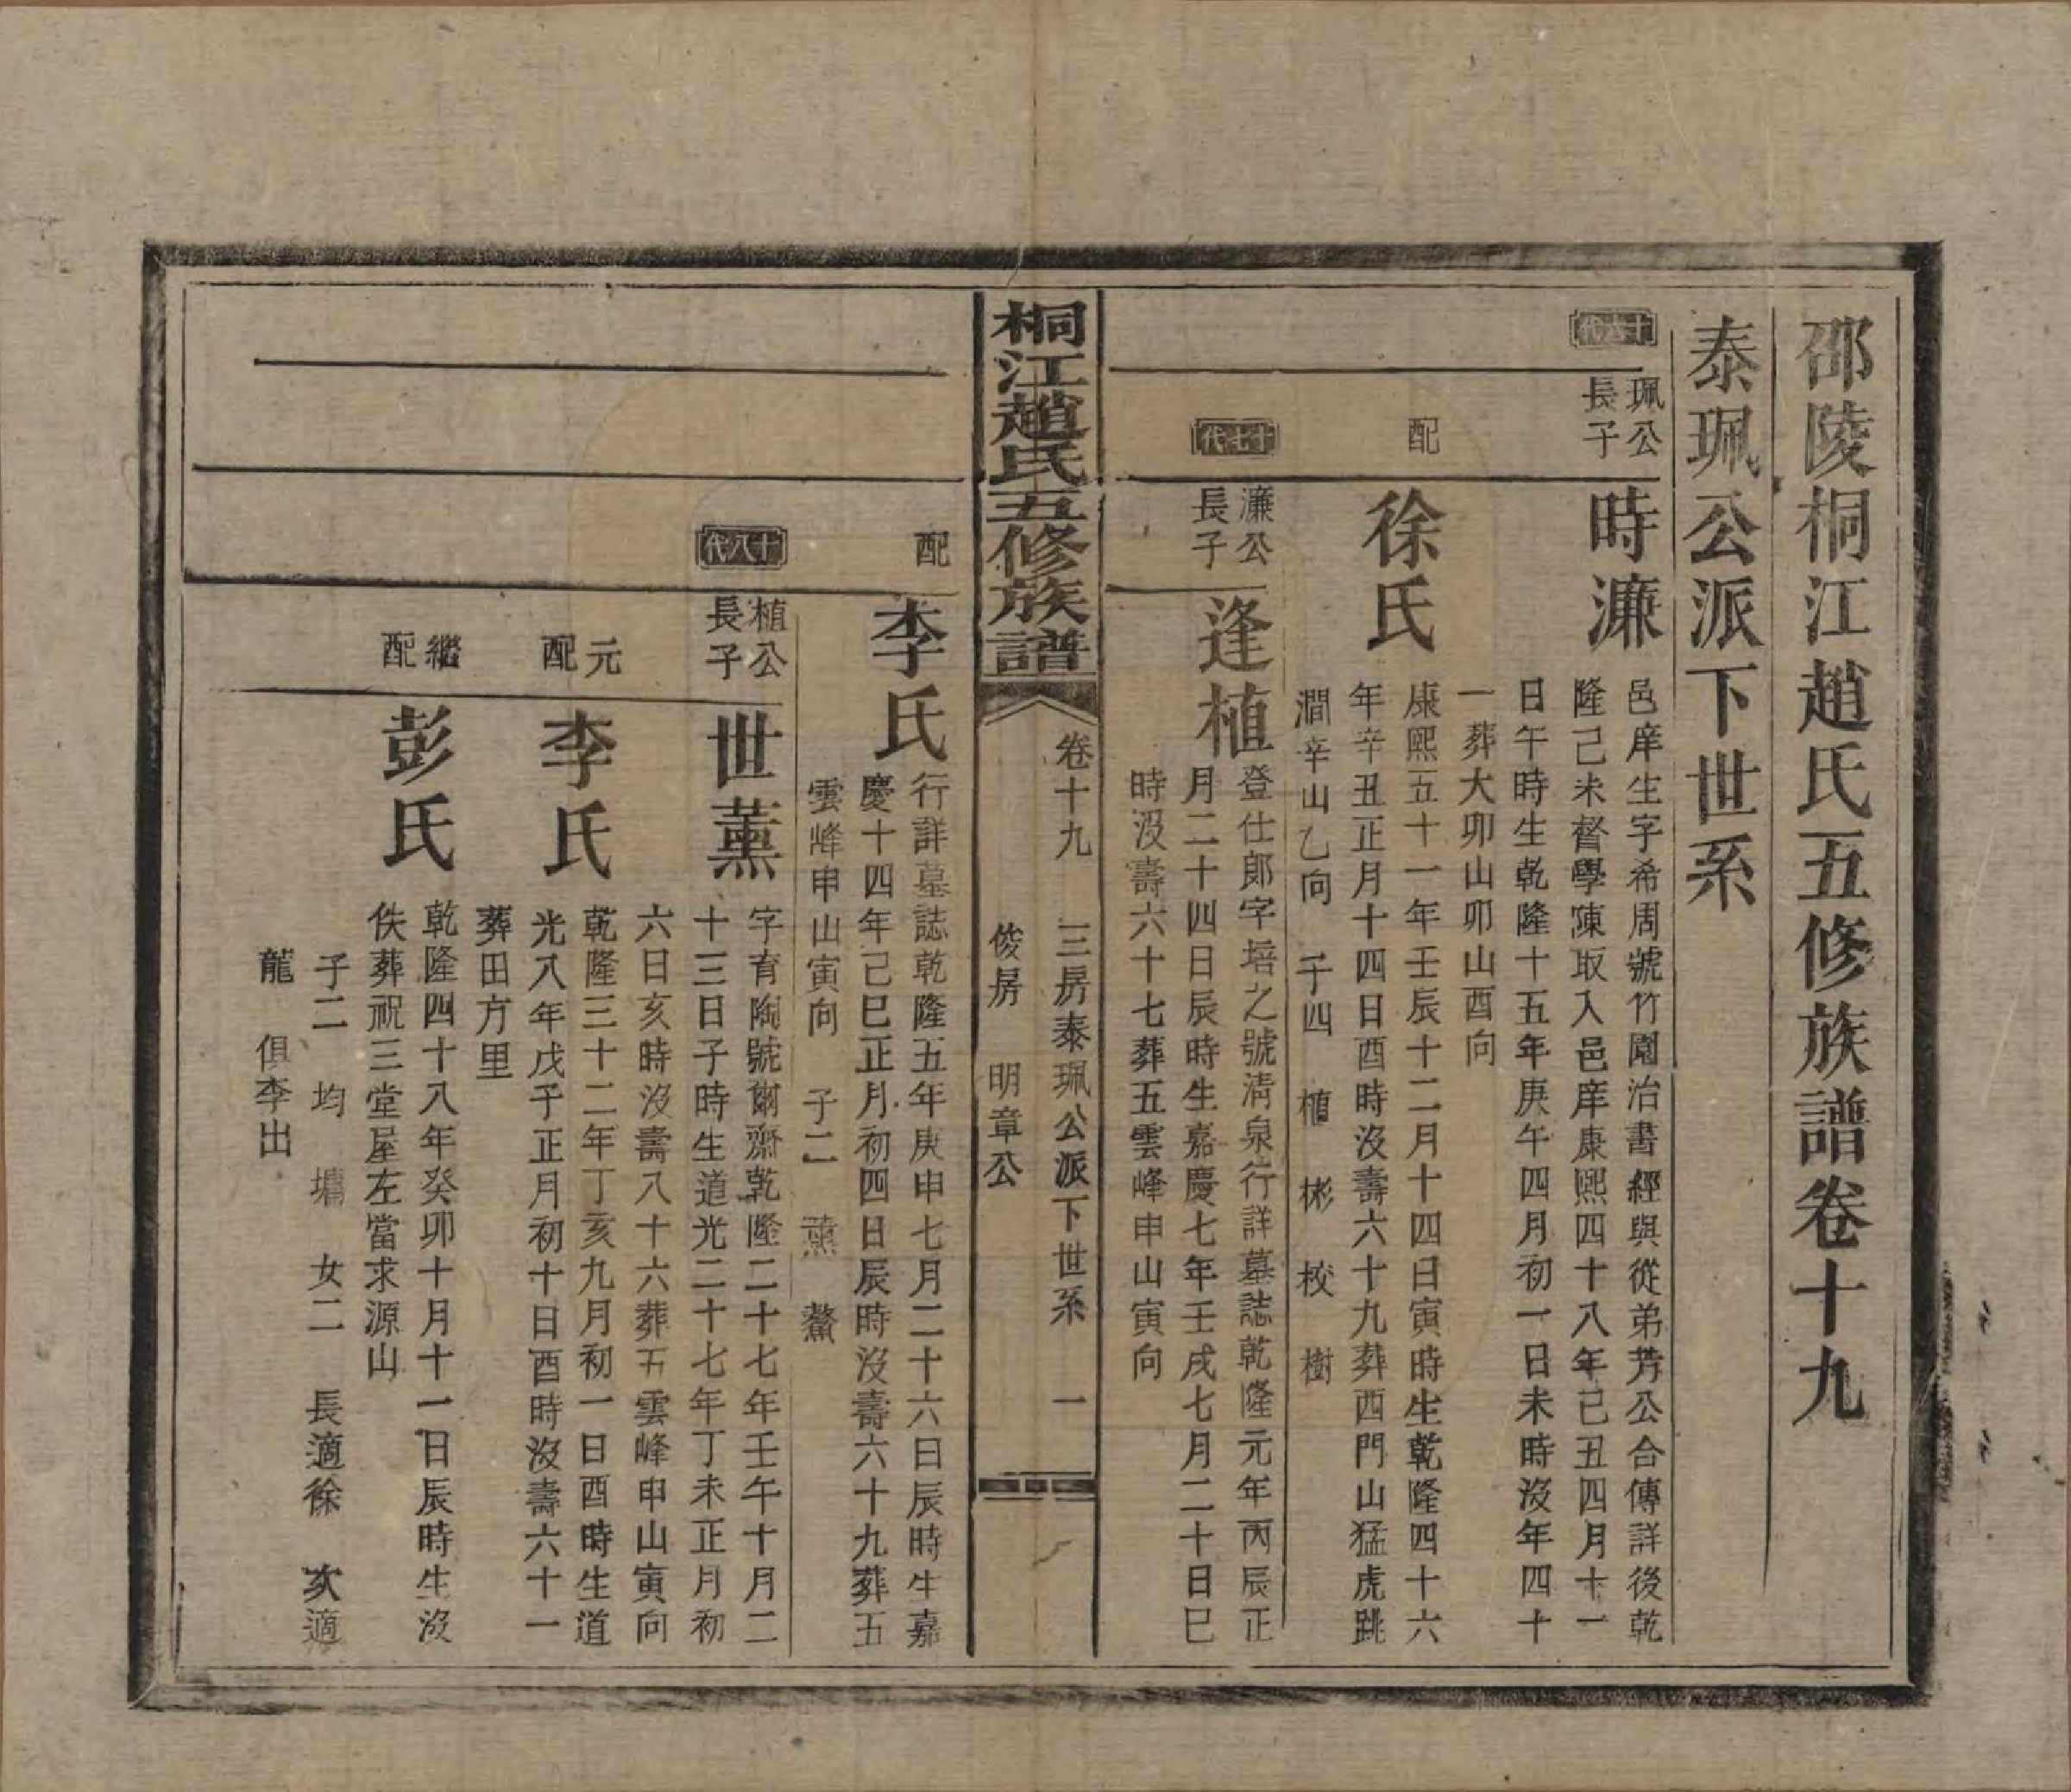 邵陵桐江趙氏五修族譜卷十九
泰珮公派下世系
十六代
珮公
長子
時濂
邑庠生字希周號竹園治書經與從弟芳公合傳詳後乾
隆己未督學陳取入邑庠康熙四十八年己丑四月十一
日午時生乾隆十五年庚午四月初一日未時沒年四十
一葬大卯山卯山酉向
配
徐氏
康熙五十一年壬辰十二月十四日寅時生乾隆四十六
年辛丑正月十四日酉時沒壽六十九葬西門山猛虎跳
澗辛山乙向 子四 植 彬 校 樹
十七代
濂公
長子
逢植
登仕郎字培之號清泉行詳墓誌乾隆元年丙辰正
月二十四日辰時生嘉慶七年壬戌七月二十日巳
時沒壽六十七葬五雲峰申山寅向
桐江趙氏五修族譜
卷十九 三房泰珮公派下世系 一
俊房 明章公
配
李氏
行詳墓誌乾隆五年庚申七月二十六日辰時生嘉
慶十四年己巳正月初四日辰時沒壽六十九葬五
雲峰申山寅向 子二 薰 鰲
十八代
植公
長子
世薰
字育陶號爾齋乾隆二十七年壬午十月二
十三日子時生道光二十七年丁未正月初
六日亥時沒壽八十六葬五雲峰申山寅向
元
配
李氏
乾隆三十二年丁亥九月初一日酉時生道
光八年戊子正月初十日酉時沒壽六十一
葬田方里
繼
配
彭氏
乾隆四十八年癸卯十月十一日辰時生沒
佚葬祝三堂屋左當求源山
子二 均 墉 女二 長適徐 次適
龍 俱李出